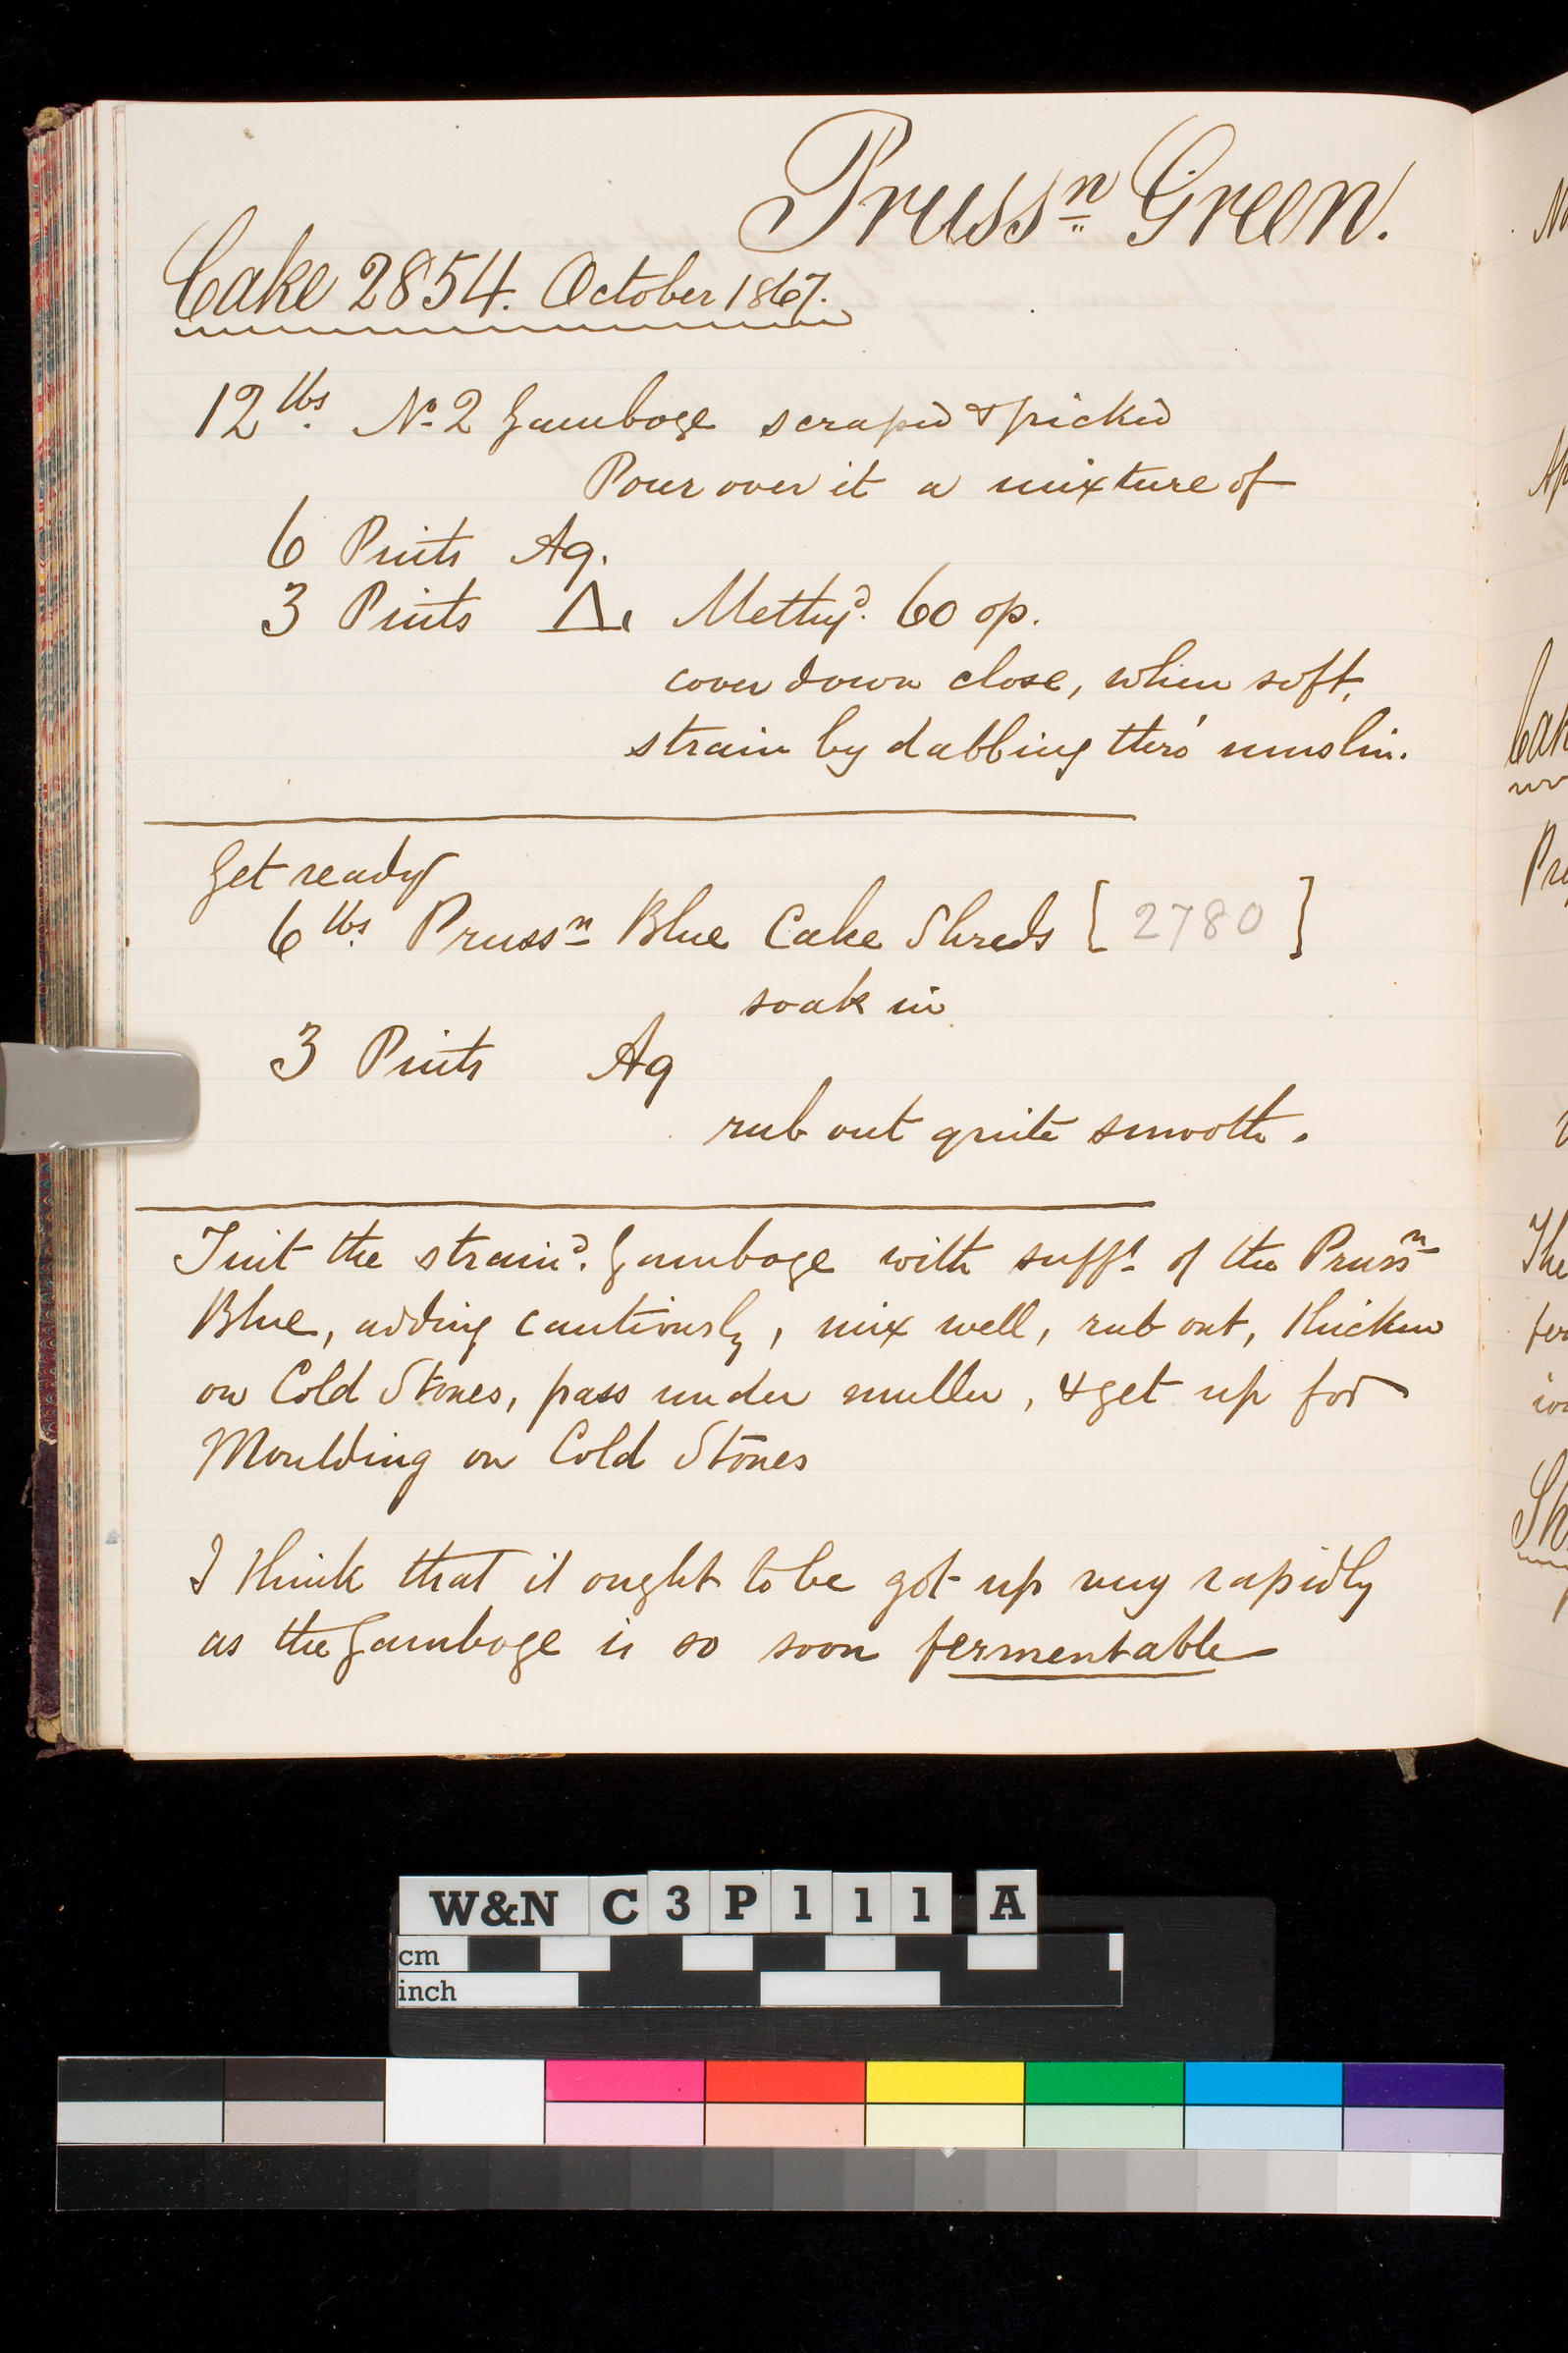 Prussⁿ Green.
Cake 2854. October 1867.
12 lbs. No. 2 Gamboge scraped & picked
Pour over it a mixture of
6 Pints Aq.
3 Pints Δ. Methyᵈ. 60 op.
cover down close, when soft,
strain by dabbing thro' muslin.
Get ready
6 lbs. Prussⁿ Blue Cake Shreds [2780]
soak in
3 Pints Aq
rub out quite smooth.
Tint the strainᵈ. Gamboge with suffᵗ of the Prussⁿ
Blue, adding cautiously, mix well, rub out, thicken
on Cold Stones, pass under muller, & get up for
Moulding on Cold Stones
I think that it ought to be got up very rapidly
as the Gamboge is so soon fermentable
W&N C3P111 A
cm
inch